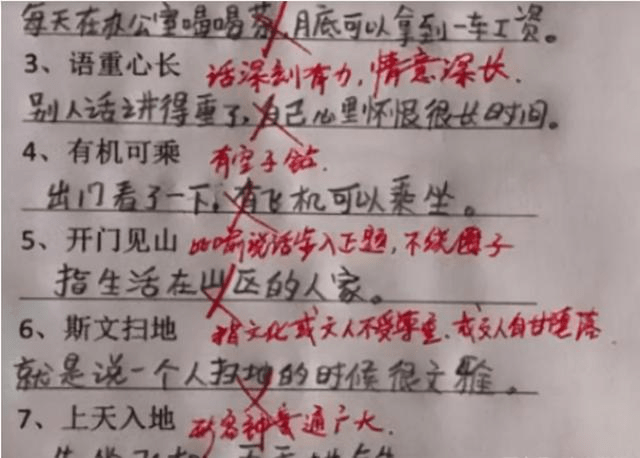 每天在办公室喝喝茶,月底可以拿到一车工资。
3、语重心长 话深刻有力,情意深长.
别人话讲得重了,自己心里怀恨很长时间。
4、有机可乘 有空子钻.
出门看了一下,有飞机可以乘坐。
5、开门见山 比喻说话步入正题,不绕圈子
指生活在山区的人家。
6、斯文扫地 指文化或文人不受尊重.或文人自甘堕落.
就是说一个人扫地的时候很文雅。
7、上天入地 形容神通广大.